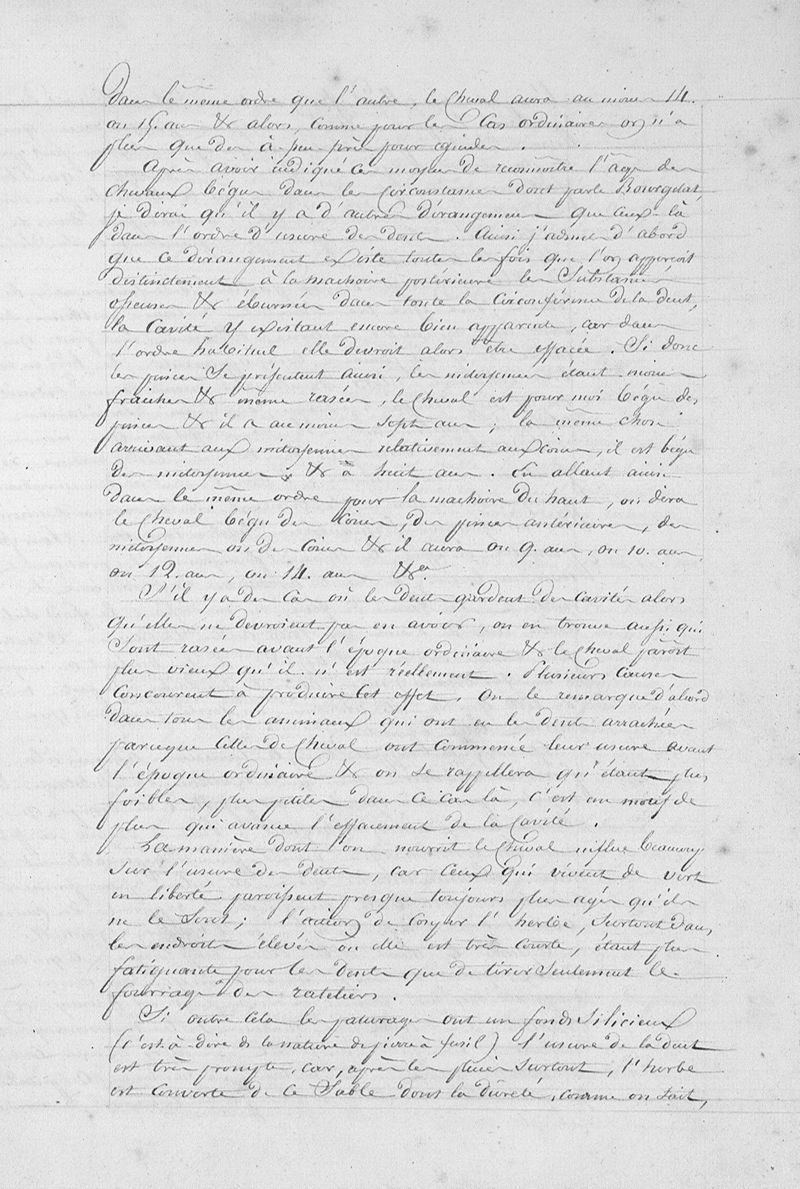 dans le même ordre que l'autre, le Cheval aura au moins 14.
ou 15. ans &c alors, comme pour les Cas ordinaires on n'a
plus que des à peu près pour guider.
Après avoir indiqué ce moyen de reconnoitre l'age des
Chevaux bégus dans les Circonstances dont parle Bourgelat,
je dirai qu'il y a d'autres dérangemens que ceux-là
dans l'ordre d'usure des dents. Ainsi j'admets d'abord
que ce dérangement existe toutes les fois que l'on apperçoit
distinctement à la machoire postérieure les Substances
osseuse & éburnée dans toute la Circonférence de la dent,
la Cavité y existant encore bien apparente, car dans
l'ordre habituel elle devroit alors être effacée. Si donc
les pinces se présentent ainsi, les mitoyennes étant moins
fraiches & même rasées, le Cheval est pour moi bégu des
pinces & il a au moins sept ans; la même chose
arrivant aux mitoyennes relativement aux Coins, il est bégu
des mitoyennes & à huit ans. En allant ainsi
dans le même ordre pour la machoire du haut, on dira
le Cheval bégu des Coins, des pinces antérieures, des
mitoyennes ou des Coins & il aura ou 9. ans, ou 10. ans,
ou 12. ans, ou 14. ans &ca.
S'il y a des Cas où les dents gardent des Cavités alors
qu'elles ne devroient pas en avoir, on en trouve aussi qui
Sont rasées avant l'époque ordinaire & le Cheval paroît
plus vieux qu'il n'est réellement. Plusieurs Causes
Concourent à produire Cet effet. On le remarque d'abord
dans tous les animaux qui ont eu les dents arrachées
parceque Celles de Cheval ont commencé leur usure avant
l'époque ordinaire & on se rappellera qu'étant plus
foibles, plus petites dans ce Cas là, c'est un motif de
plus qui avance l'effacement de la Cavité.
La manière dont l'on nourrit le Cheval influe beaucoup
Sur l'usure des dents, car Ceux qui vivent de vert
en liberté paroissent presque toujours plus agés qu'ils
ne le Sont; l'action de Couper l'herbe, Surtout dans
les endroits élevés où elle est très Courte, étant plus
fatiguante pour les dents que de tirer Seulement le
fourrage des rateliers.
Si outre Cela les paturages ont un fonds Silicieux
(c'est à dire de la nature de pierre à fusil) l'usure de la dent
est très prompte, car, après les pluies Surtout, l'herbe
est Couverte de Ce Sable dont la dureté, comme on Sait,